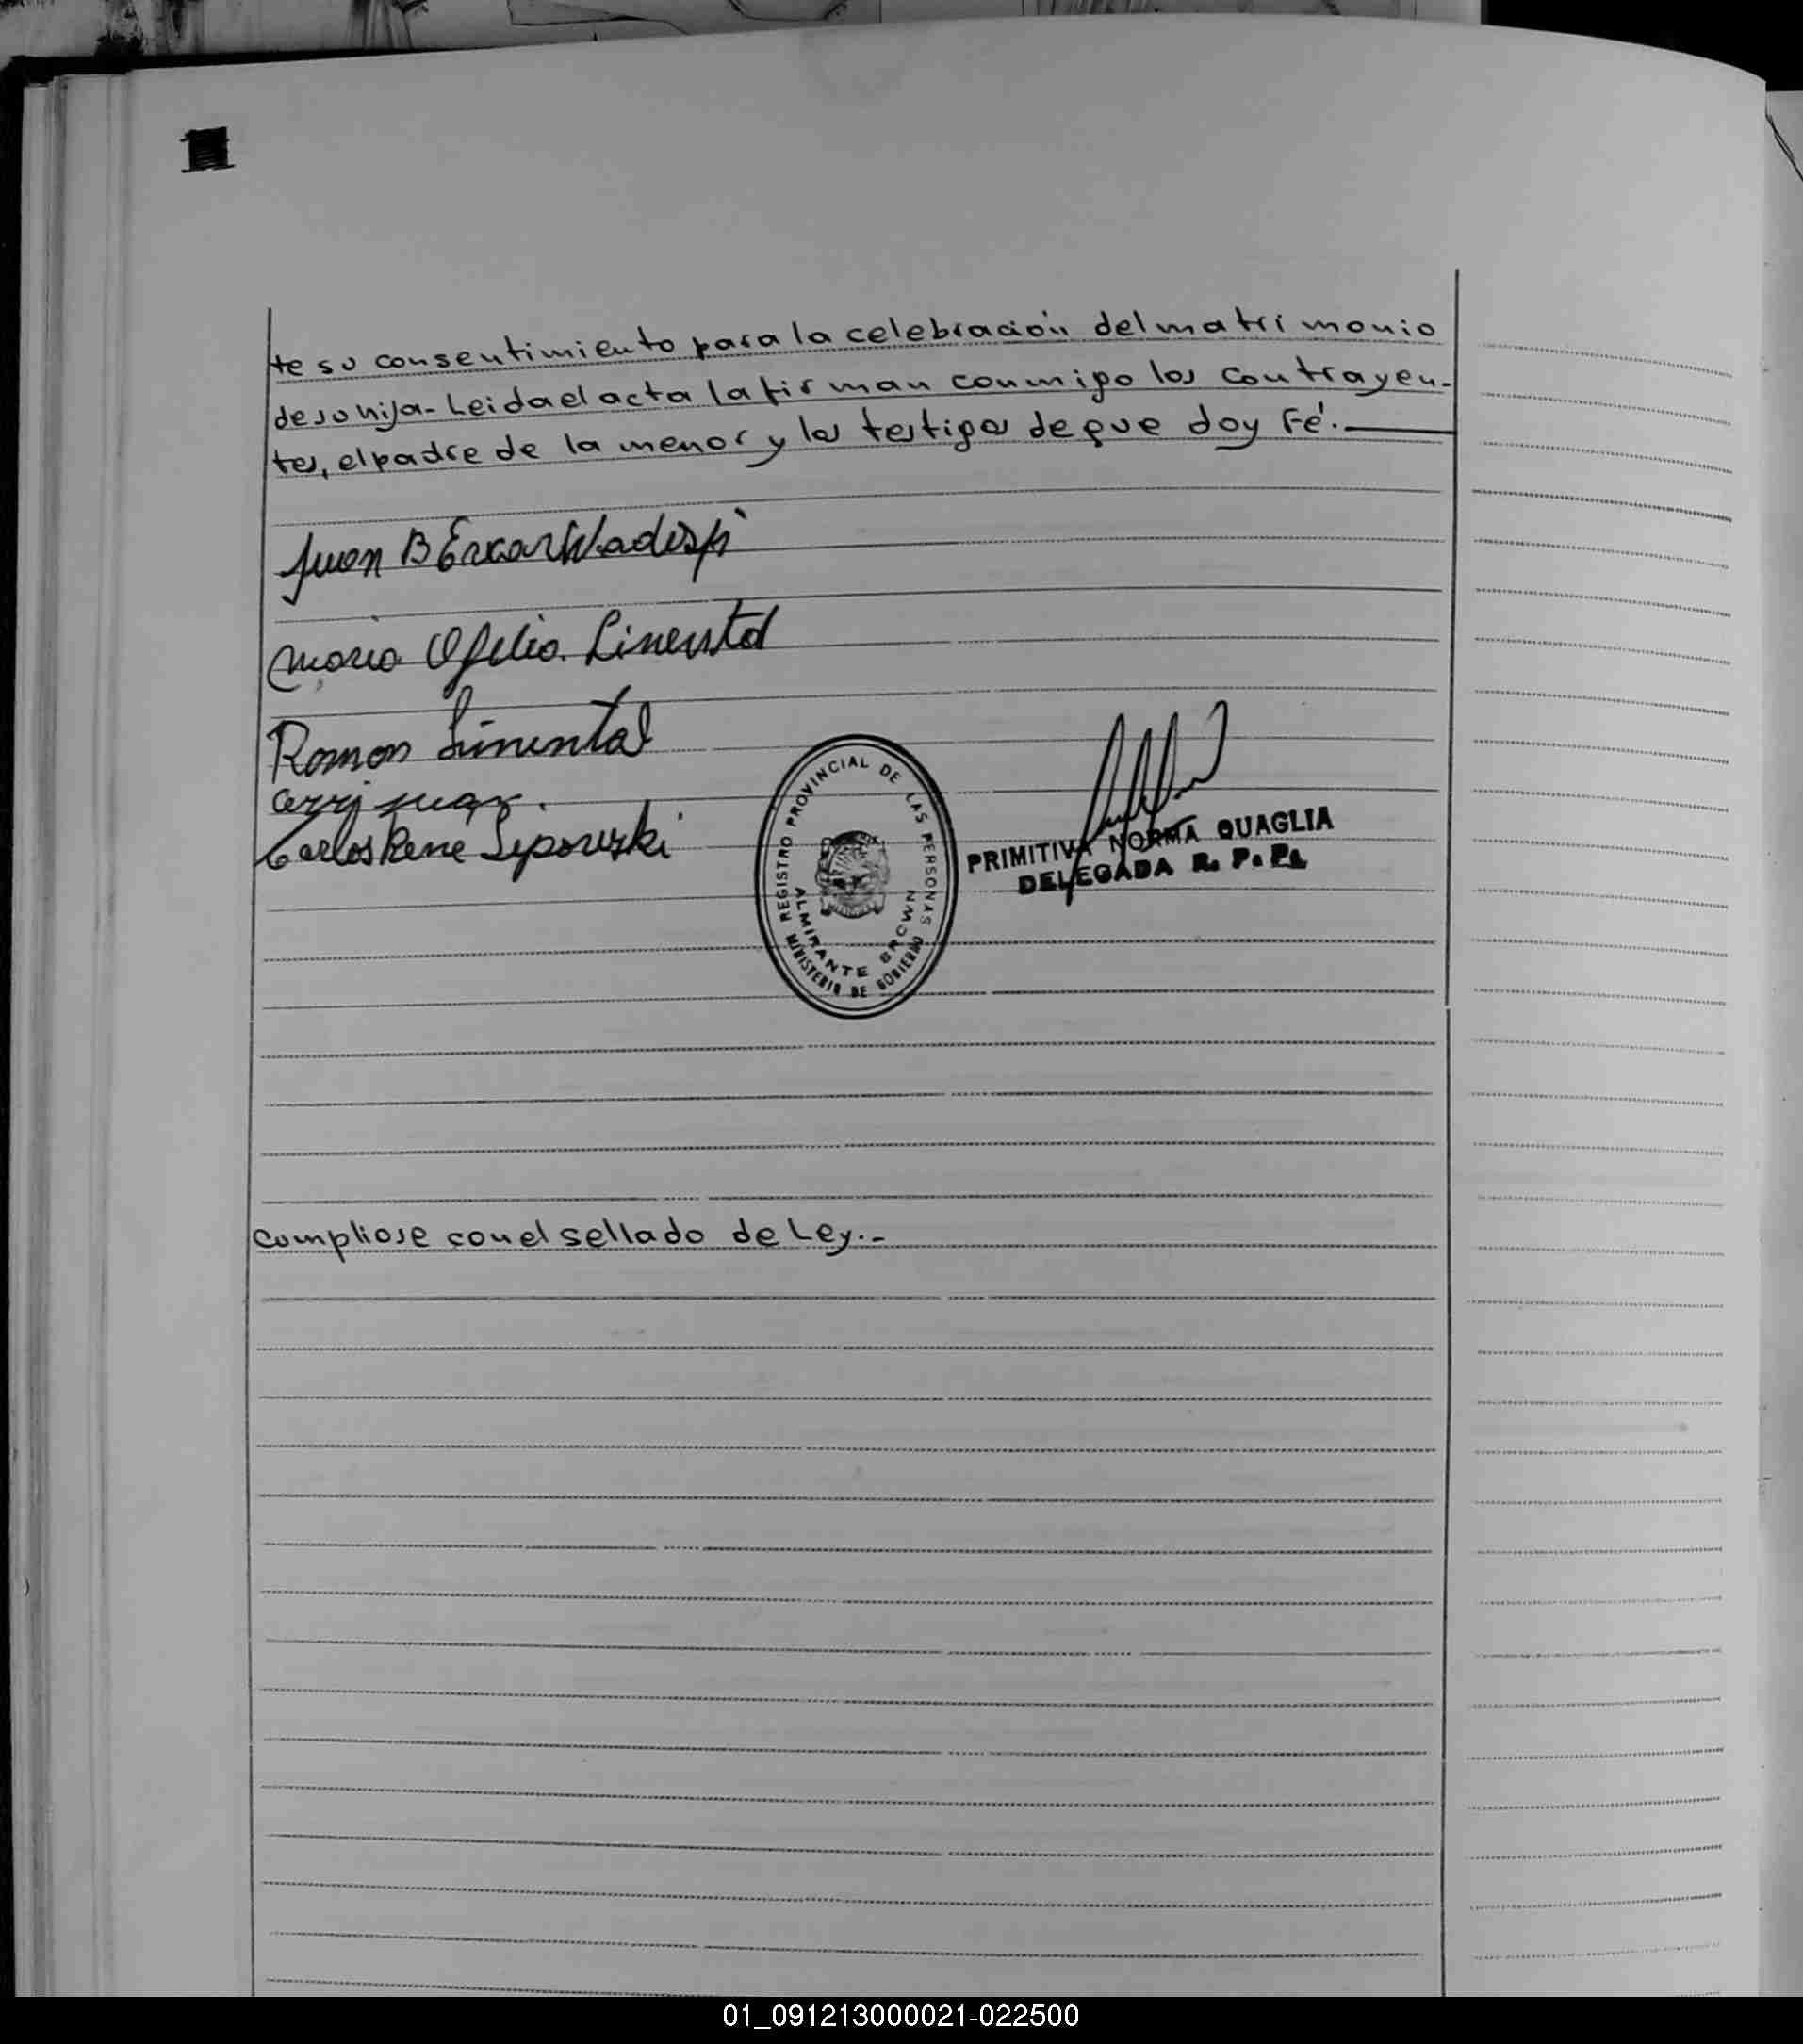 te su consentimiento para la celebración del matrimonio
de su hija- Leida el acta la firman conmigo los contrayen-
tes, el padre de la menor y los testigos de que doy Fé.-
Juan B
Maria Ofelia Linental
Ramon Linental
Carlos Rene
REGISTRO PROVINCIAL DE LAS PERSONAS
ALMIRANTE BROWN
MINISTERIO DE GOBIERNO
PRIMITIVA NORMA QUAGLIA
DELEGADA R. P. P.
Cumpliose con el sellado de Ley.-
01_091213000021-022500